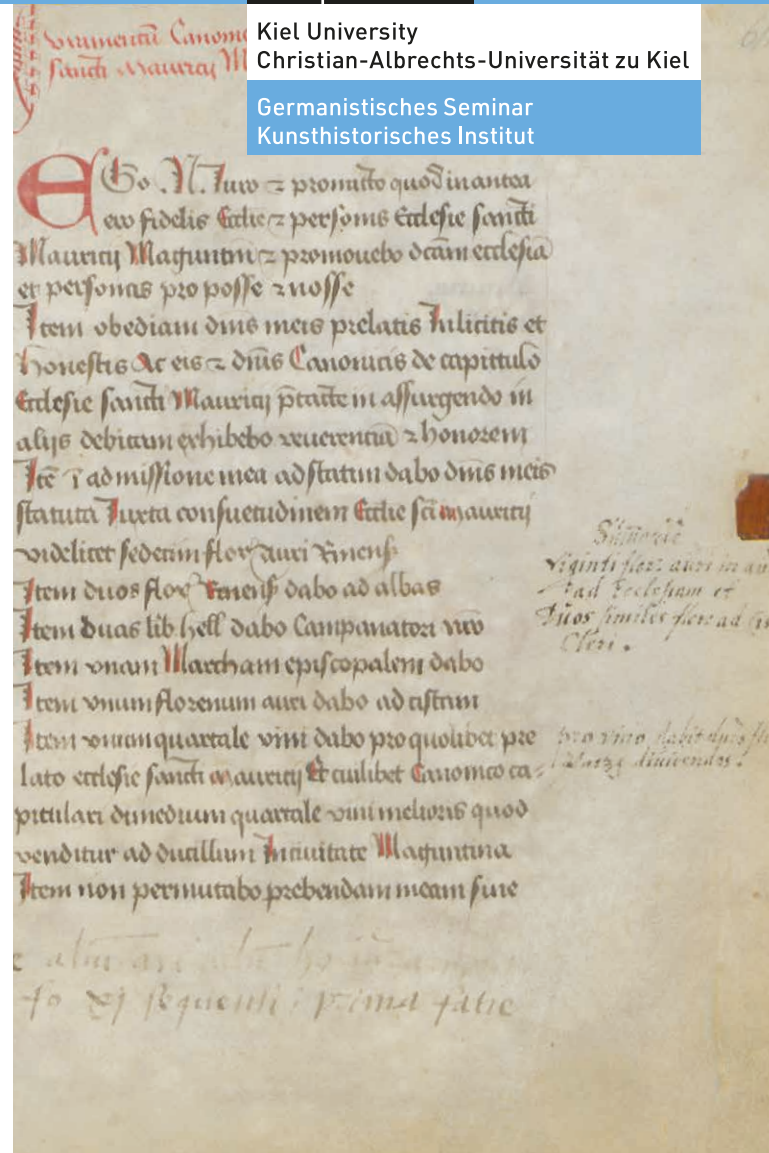 Kiel University
Christian-Albrechts-Universität zu Kiel
Germanistisches Seminar
Kunsthistorisches Institut
Canonic
sancti Mauricij M
EGo .N. Iuro ⁊ promitto quod in antea
ero fidelis Ecclie ⁊ personis Ecclesie sancti
Mauricij Maguntin ⁊ promouebo dcam ecclesiā
et personas pro posse ⁊ nosse
Item obediam dnis meis prelatis In licitis et
honestis Ac eis ⁊ dnis Canonicis de capittulo
Ecclesie sancti Mauricij in assurgendo in
alijs debitam exhibebo reuerentiā ⁊ honorem
Itē ī admissione mea ad statum dabo dnis meis
statuta Iuxta consuetudinem Ecclie sci mauricij
videlicet sedecim flor auri Renens
Item duos flor Renens dabo ad albas
Item duas lib hell dabo Campanatori
Item vnam Marcham episcopalem dabo
Item vnum florenum auri dabo ad cistam
Item vnum quartale vini dabo pro quolibet pre
lato ecclesie sancti mauricij Et cuilibet Canonico ca
pitulari dimedium quartale vini melioris quod
venditur ad ducillum In ciuitate Maguntina
Item non permutabo prebendam meam siue
viginti flor auri in au
ad Ecclesiam et
Duos similes flor ad
Cleri.
pro vino dabit
sequenti prima facie